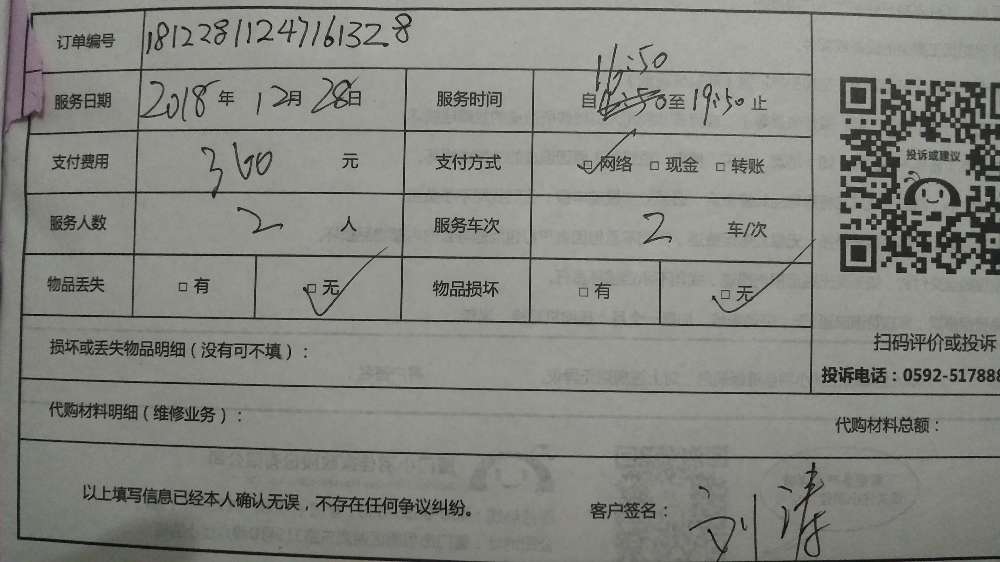 订单编号 18122811247161328
服务日期 2018年 12月 28日 服务时间 自 至 19:50 止
支付费用 300 元 支付方式 □ 网络 □ 现金 □ 转账
投诉或建议
服务人数 2 人 服务车次 2 车/次
物品丢失 □ 有 □ 无 物品损坏 □ 有 □ 无
扫码评价或投诉
损坏或丢失物品明细（没有可不填）：
投诉电话：0592-517888
代购材料明细（维修业务）：
代购材料总额：
以上填写信息已经本人确认无误，不存在任何争议纠纷。
客户签名： 刘涛